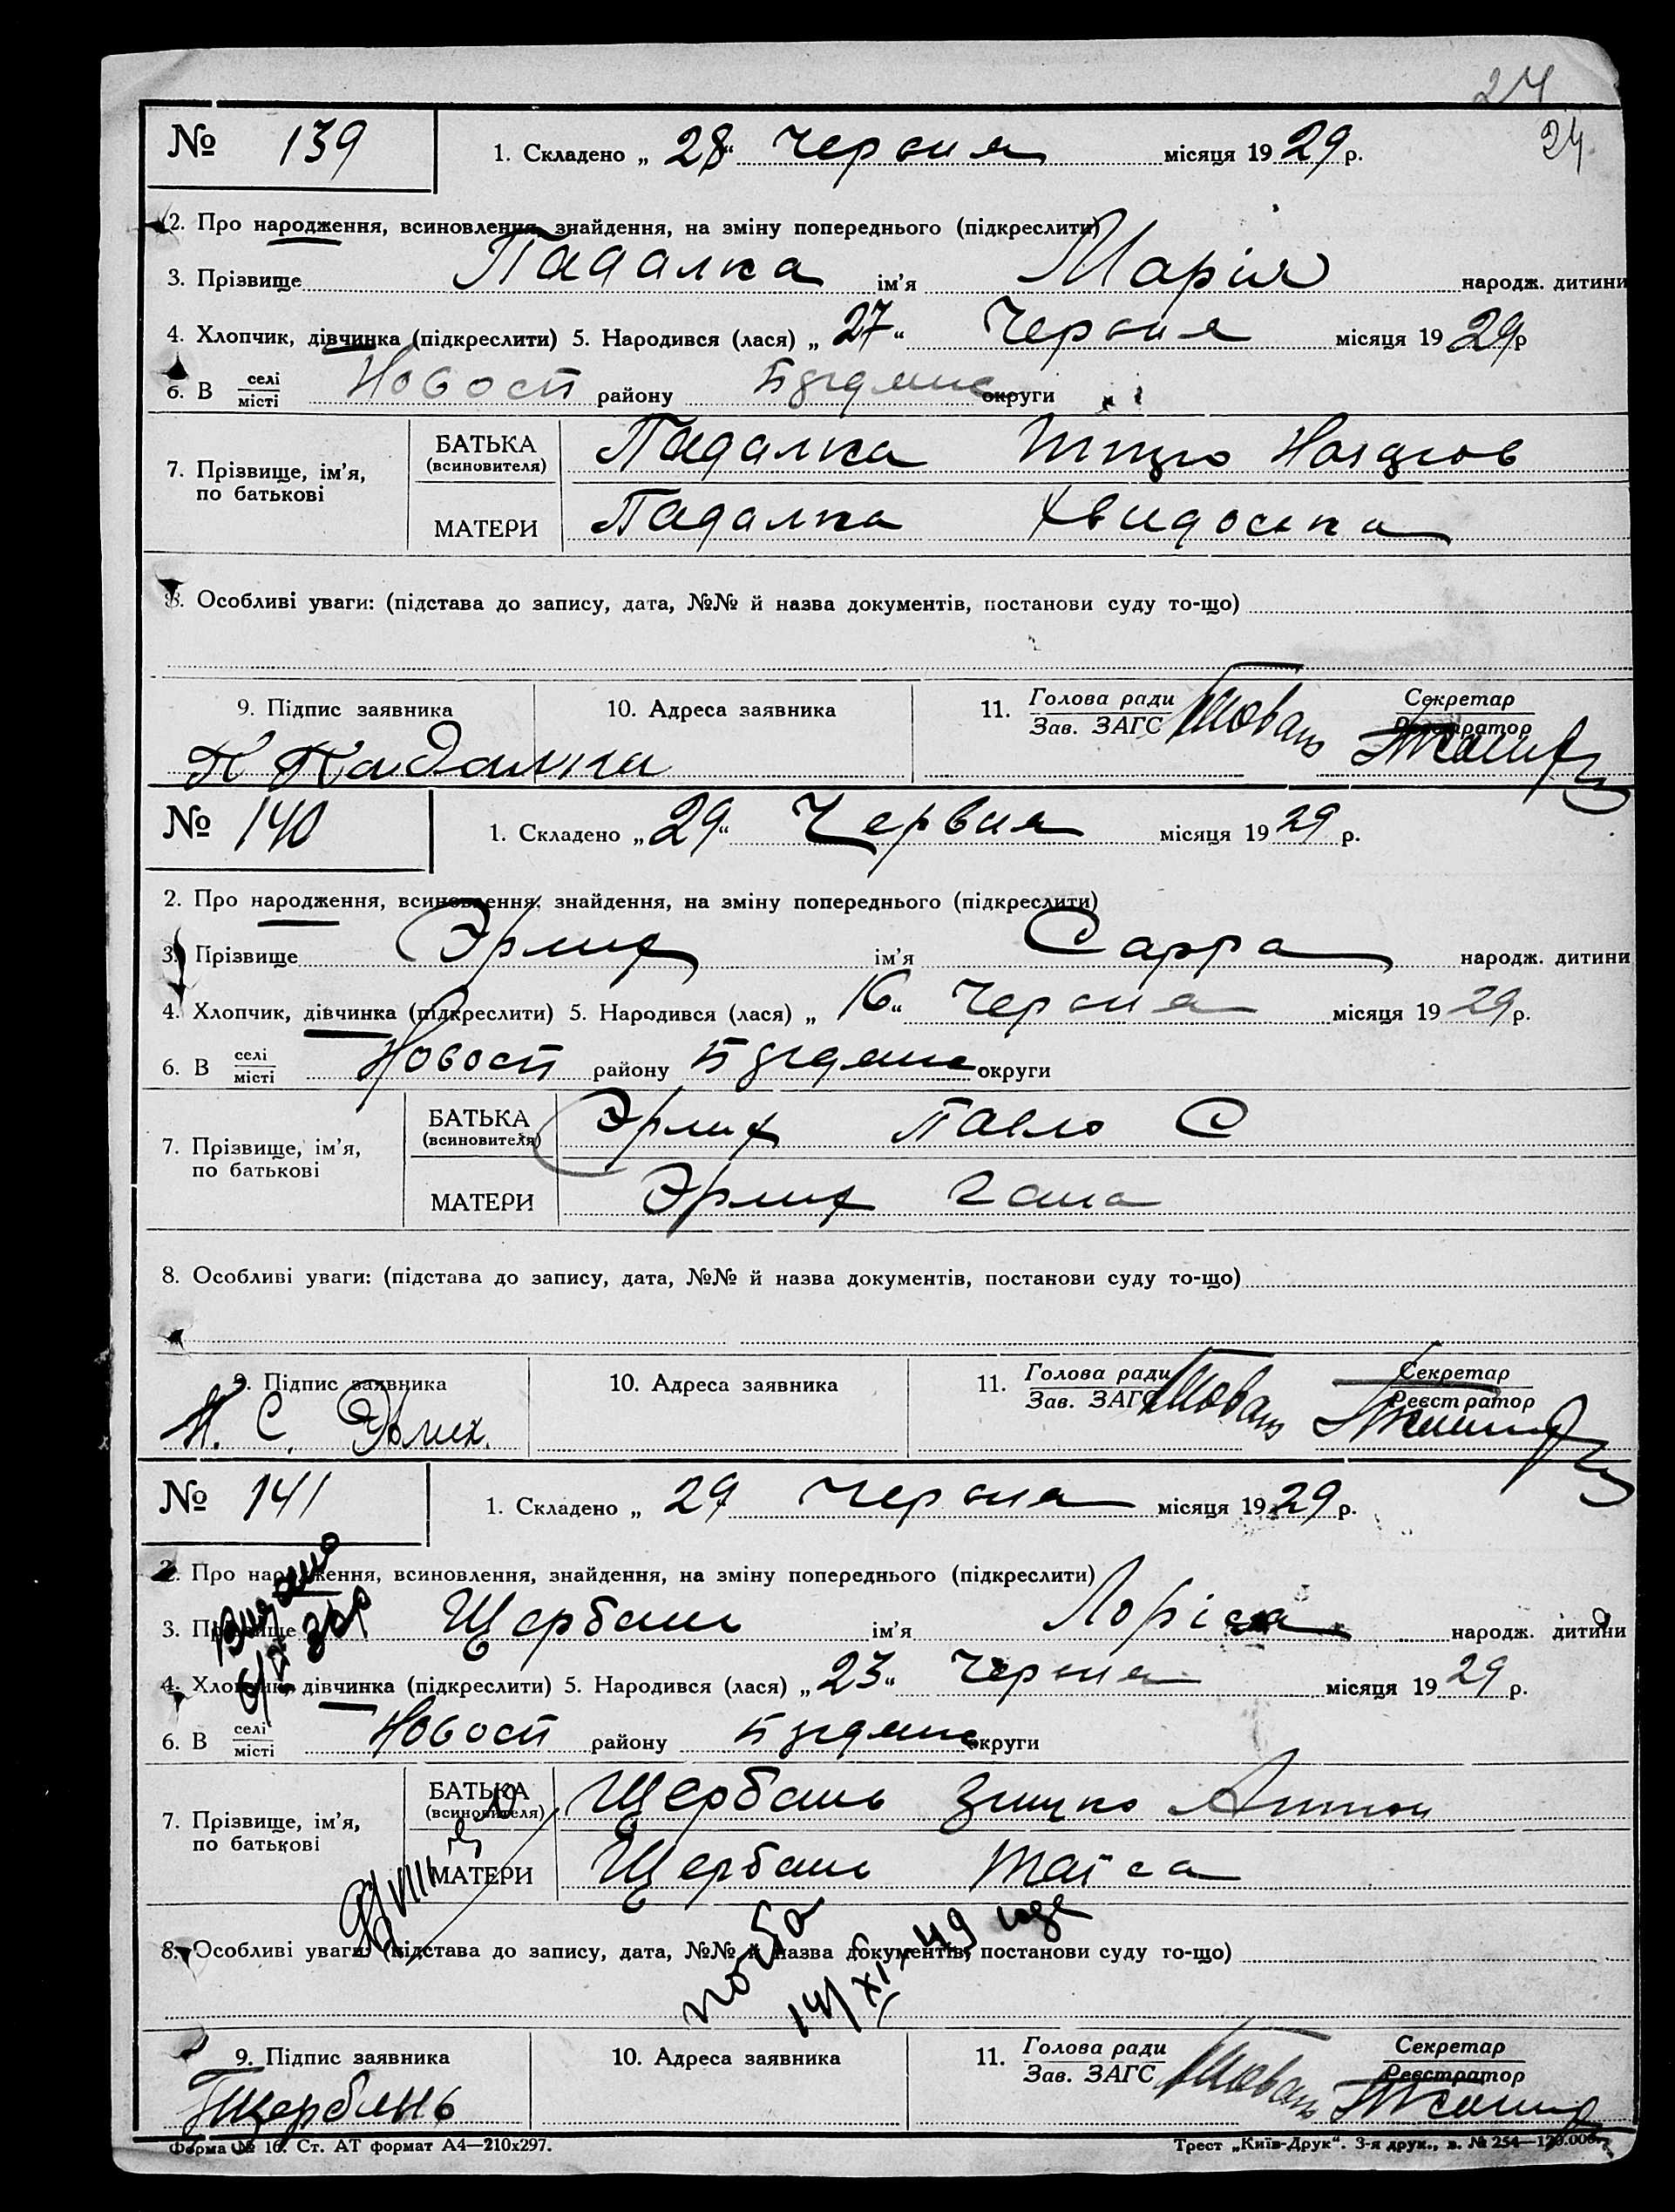 24
24
№ 139
1. Складено „ 28 “ Червня місяця 19 29 р.
2. Про народження, всиновлення, знайдення, на зміну попереднього (підкреслити)
3. Прізвище Падалка ім’я Марія народж. дитини
4. Хлопчик, дівчинка (підкреслити) 5. Народився (лася) „ 27 “ Червня місяця 19 29 р
6. В селі місті Новост району округи
7. Прізвище, ім’я, по батькові
БАТЬКА (всиновителя) Падалка
МАТЕРИ Падалка Хвидоська
8. Особливі уваги: (підстава до запису, дата, №№ й назва документів, постанови суду то-що)
9. Підпис заявника 10. Адреса заявника 11. Голова ради Зав. ЗАГС Секретар Реєстратор
П Падалка
№ 140
1. Складено „ 29 “ Червня місяця 19 29 р.
2. Про народження, всиновлення, знайдення, на зміну попереднього (підкреслити)
3. Прізвище Эрлих ім’я Сарра народж. дитини
4. Хлопчик, дівчинка (підкреслити) 5. Народився (лася) „ 16 “ Червня місяця 19 29 р.
6. В селі місті Новост району округи
7. Прізвище, ім’я, по батькові
БАТЬКА (всиновителя) Эрлих Павло С
МАТЕРИ Эрлих Гана
8. Особливі уваги: (підстава до запису, дата, №№ й назва документів, постанови суду то-що)
9. Підпис заявника 10. Адреса заявника 11. Голова ради Зав. ЗАГС Секретар Реєстратор
С. Эрлих.
№ 141
1. Складено „ 29 Червня місяця 19 29 р.
2. Про народження, всиновлення, знайдення, на зміну попереднього (підкреслити)
3. Прізвище Щербань ім’я Лоріса народж. дитини
4. Хлопчик, дівчинка (підкреслити) 5. Народився (лася) „ 23 “ Червня місяця 19 29 р.
6. В селі місті Новост району округи
7. Прізвище, ім’я, по батькові
БАТЬКА (всиновителя) Щербань Антон
МАТЕРИ Щербань Таїса
8. Особливі уваги: (підстава до запису, дата, №№ й назва документів, постанови суду то-що)
14/XI 49 года
9. Підпис заявника 10. Адреса заявника 11. Голова ради Зав. ЗАГС Секретар Реєстратор
Щербань
Форма № 16. Ст. АТ формат А4—210х297.
Трест „Київ-Друк“. 3-я друк., з. № 254—120.000.